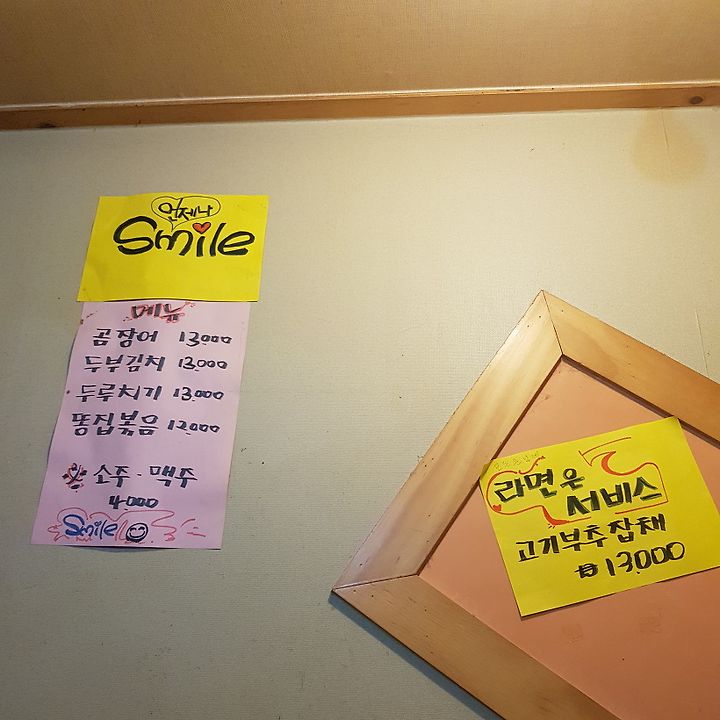 언제나
Smile
메뉴
곰장어 13.000
두부김치 13.000
두루치기 13.000
똥집볶음 12.000
※ 소주 · 맥주
4.000
Smile
라면은
서비스
고기부추잡채
₩13.000